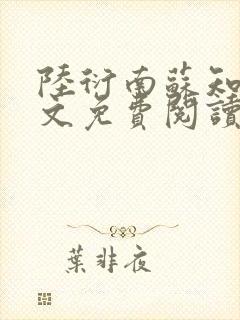 陸衍南蘇知
文免費閱讀
葉非夜